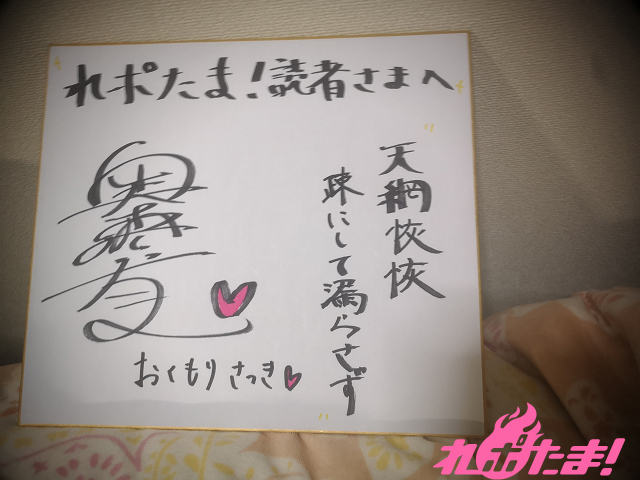 れポたま!読者さまへ
天網恢恢
疎にして漏らさず
おくもりさつき
れポたま!